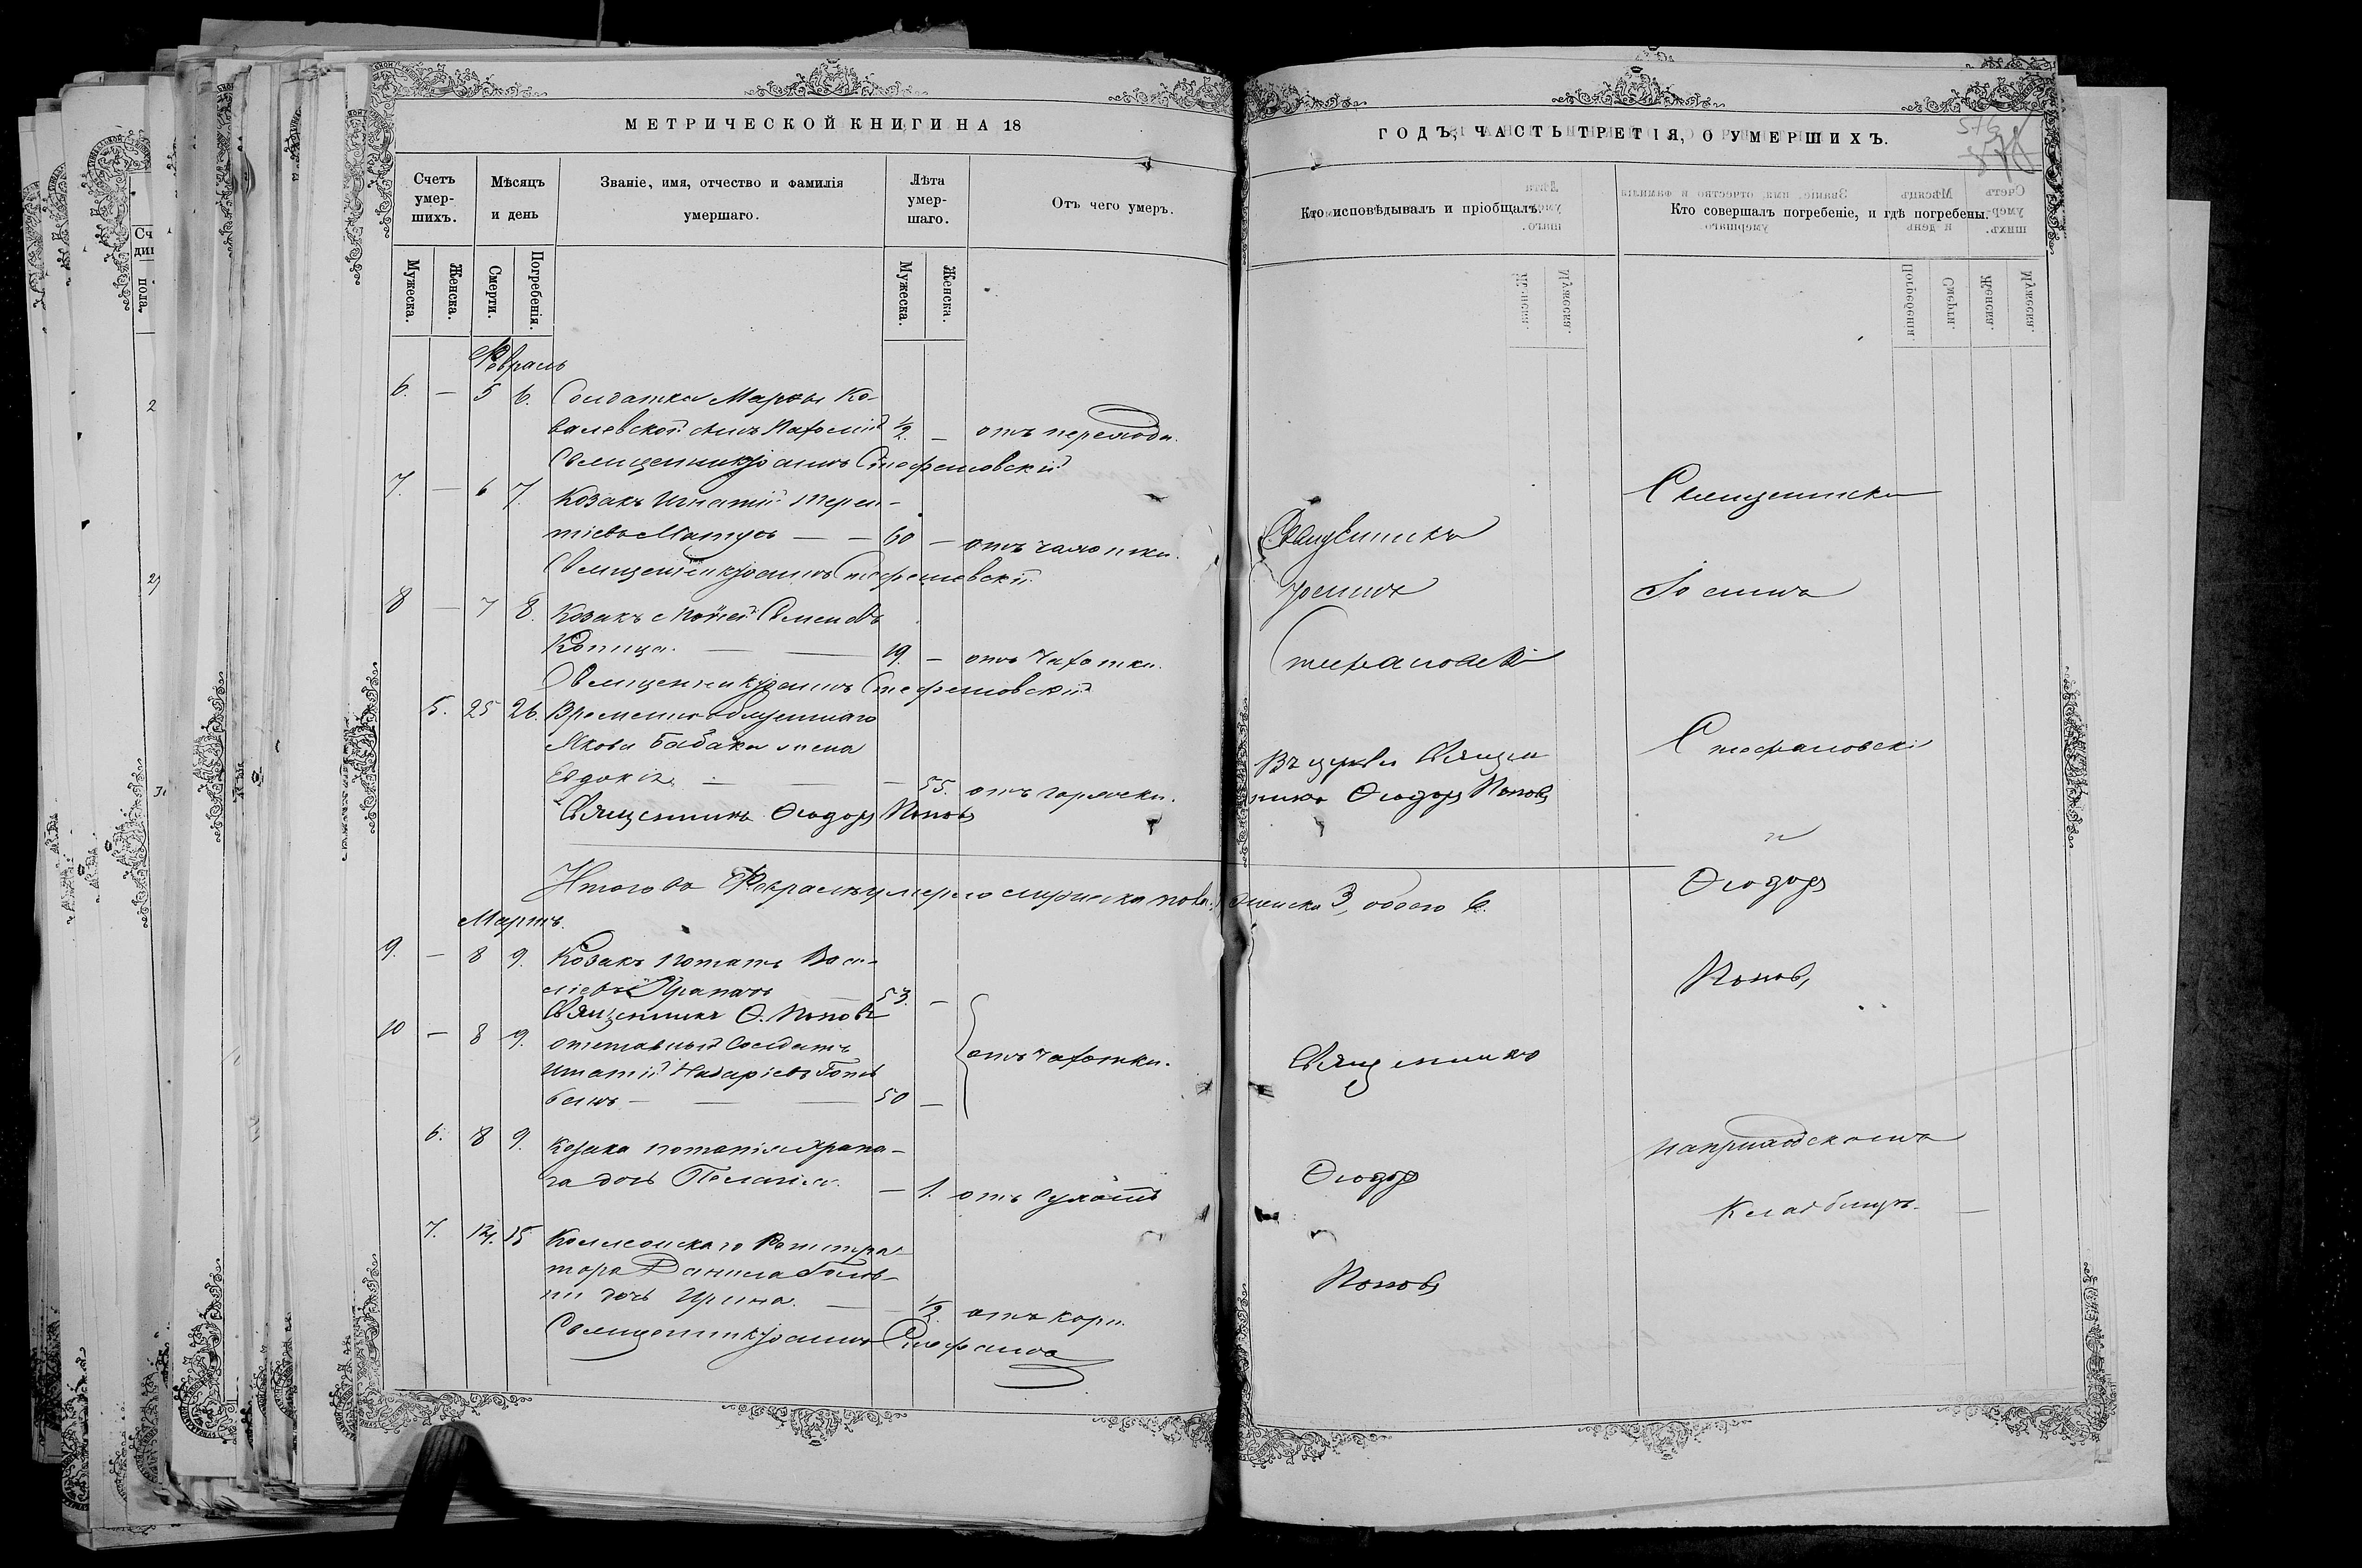 МЕТРИЧЕСКОЙ КНИГИ НА 18
Счетъ умер-шихъ.
Мѣсяцъ и день
Званіе, имя, отчество и фамилія умершаго.
Лѣта умер-шаго.
Отъ чего умеръ.
Мужеска.
Женска.
Смерти.
Погребенія.
Мужеска.
Женска.
Февраль
6. — 5 6. Солдатки Марфы Ко-
валевской сынъ Пахомій ½ —
Священникъ Іоаннъ Стефановскій
7. — 6 7. Козакъ Игнатій Терен-
тіевъ Матусъ — — 60 — отъ чахотки.
Священникъ Іоаннъ Стефановскій
8 — 7 8. Козакъ Семеновъ
Копица. — — 19. — отъ чахотки.
Священникъ Іоаннъ Стефановскій
5. 25 26. Временно обязаннаго
Якова Бабака жена
Евдокія. — — — 55. отъ горячки.
Священникъ Ѳеодоръ Поповъ
Итого въ Февралѣ умерло мужеска пола женска 3, обоего 6.
Мартъ.
9. — 8 9. Козакъ Потапъ Васи-
ліевъ 53. —
Священникъ Ѳ. Поповъ
10 — 8 9. Отставный Солдатъ
Игнатій Назаріевъ
— — — 50 —
отъ чахотки.
6. 8 9. Козака Потапія Храпа-
ча дочь Пелагія. — 1. отъ сухотъ
7. 14. 15 Коллежскаго Регистра-
тора Данила Голов-
ни дочь Ирина. — — ½ отъ кори.
Священникъ Іоаннъ Стефановс
ГОДЪ, ЧАСТЬ ТРЕТІЯ, О УМЕРШИХЪ.
Кто исповѣдывалъ и пріобщалъ.
Кто совершалъ погребеніе, и гдѣ погребены.
Священникъ
Іоаннъ
Стефановскій
Въ церкви Священ
никъ Ѳеодоръ Поповъ
Священникъ
Ѳеодоръ
Поповъ
Священники
Іоаннъ
Стефановскій
и
Ѳеодоръ
Поповъ,
на приходскомъ
Кладбищѣ. —